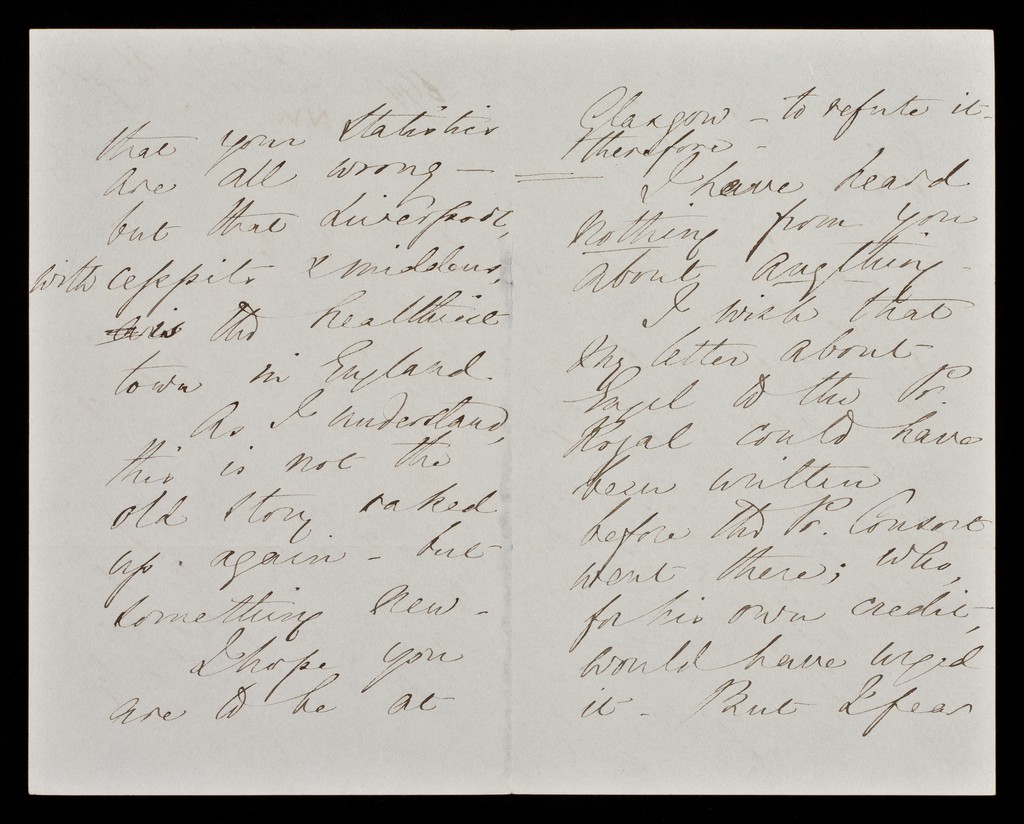 that your Statistics
are all wrong -
but that Liverpool,
with cesspits & middens,
is the healthiest
town in England.
As I understand,
this is not the
old story raked
up again - but
something new -
I hope you
are to be at
Glasgow - to refute it -
therefore -
I have heard
nothing from you
about anything -
I wish that
my letter about
Engel to the Pr.
Royal could have
been written
before the Pr. Consort
went there; who,
for his own credit,
would have urged
it - But I fear